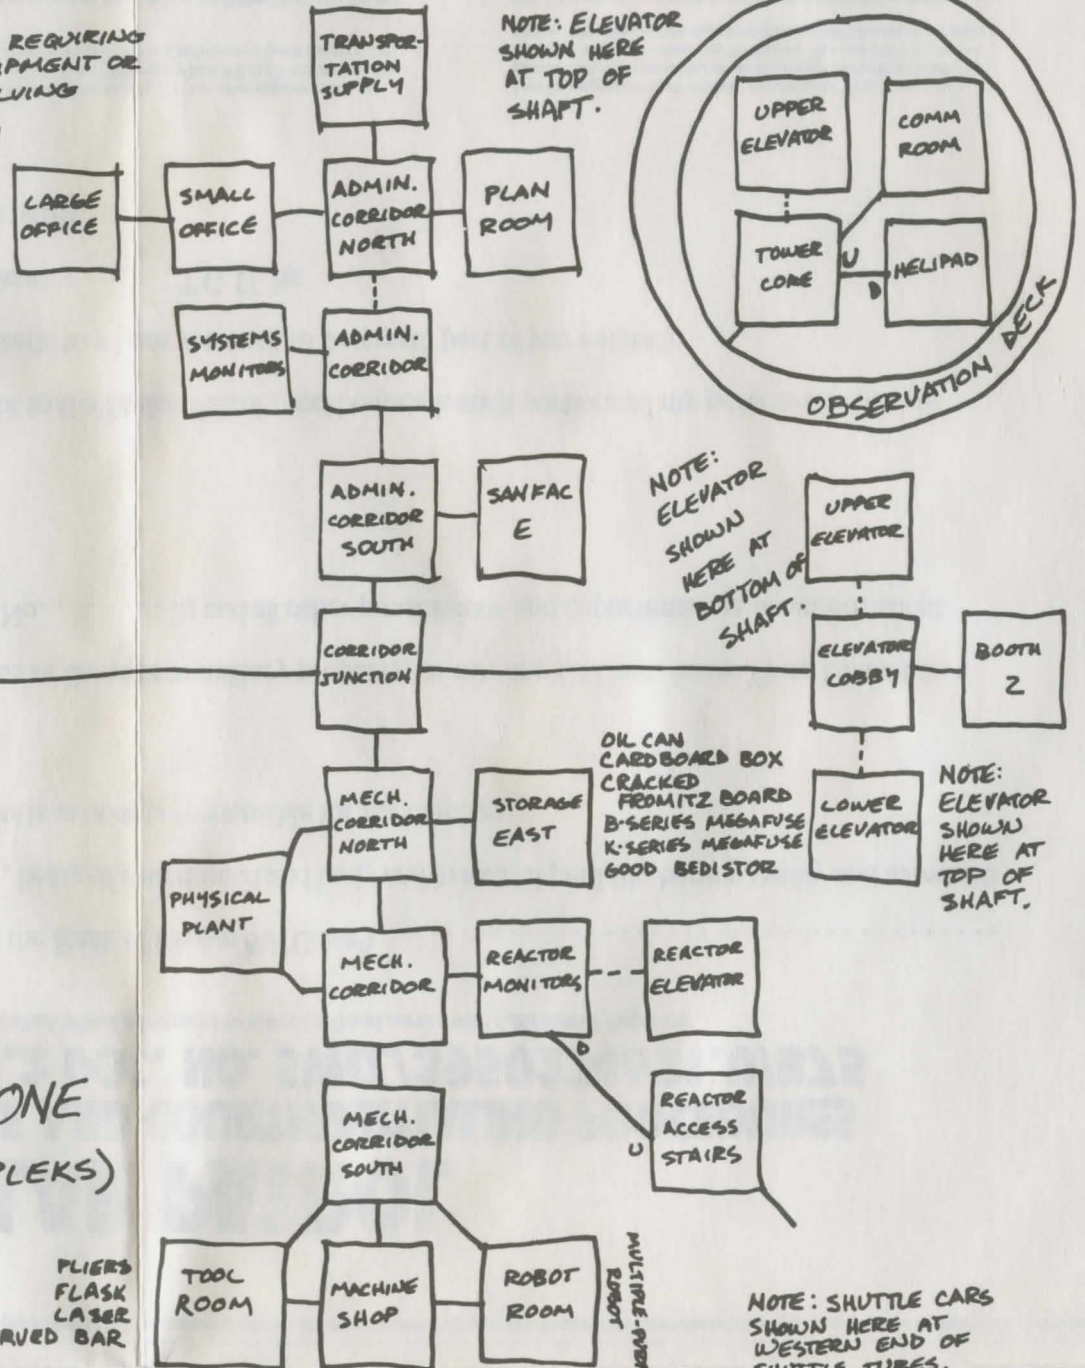 REQUIRING
OR
TRANSPOR-
TATION
SUPPLY
NOTE: ELEVATOR
SHOWN HERE
AT TOP OF
SHAFT.
UPPER
ELEVATOR
COMM
ROOM
TOWER
CORE
U
D
HELIPAD
OBSERVATION DECK
LARGE
OFFICE
SMALL
OFFICE
ADMIN.
CORRIDOR
NORTH
PLAN
ROOM
SYSTEMS
MONITORS
ADMIN.
CORRIDOR
ADMIN.
CORRIDOR
SOUTH
SANFAC
E
NOTE:
ELEVATOR
SHOWN
HERE AT
BOTTOM OF
SHAFT.
UPPER
ELEVATOR
CORRIDOR
JUNCTION
ELEVATOR
LOBBY
BOOTH
2
MECH.
CORRIDOR
NORTH
STORAGE
EAST
OIL CAN
CARDBOARD BOX
CRACKED
FROMITZ BOARD
B-SERIES MEGAFUSE
K-SERIES MEGAFUSE
GOOD BEDISTOR
LOWER
ELEVATOR
NOTE:
ELEVATOR
SHOWN
HERE AT
TOP OF
SHAFT.
PHYSICAL
PLANT
MECH.
CORRIDOR
REACTOR
MONITORS
REACTOR
ELEVATOR
D
U
REACTOR
ACCESS
STAIRS
ONE
PLEKS)
MECH.
CORRIDOR
SOUTH
PLIERS
FLASK
LASER
RVED BAR
TOOL
ROOM
MACHINE
SHOP
ROBOT
ROOM
MULTIPLE-
ROBOT
NOTE: SHUTTLE CARS
SHOWN HERE AT
WESTERN END OF
SHUTTLE TUBES.